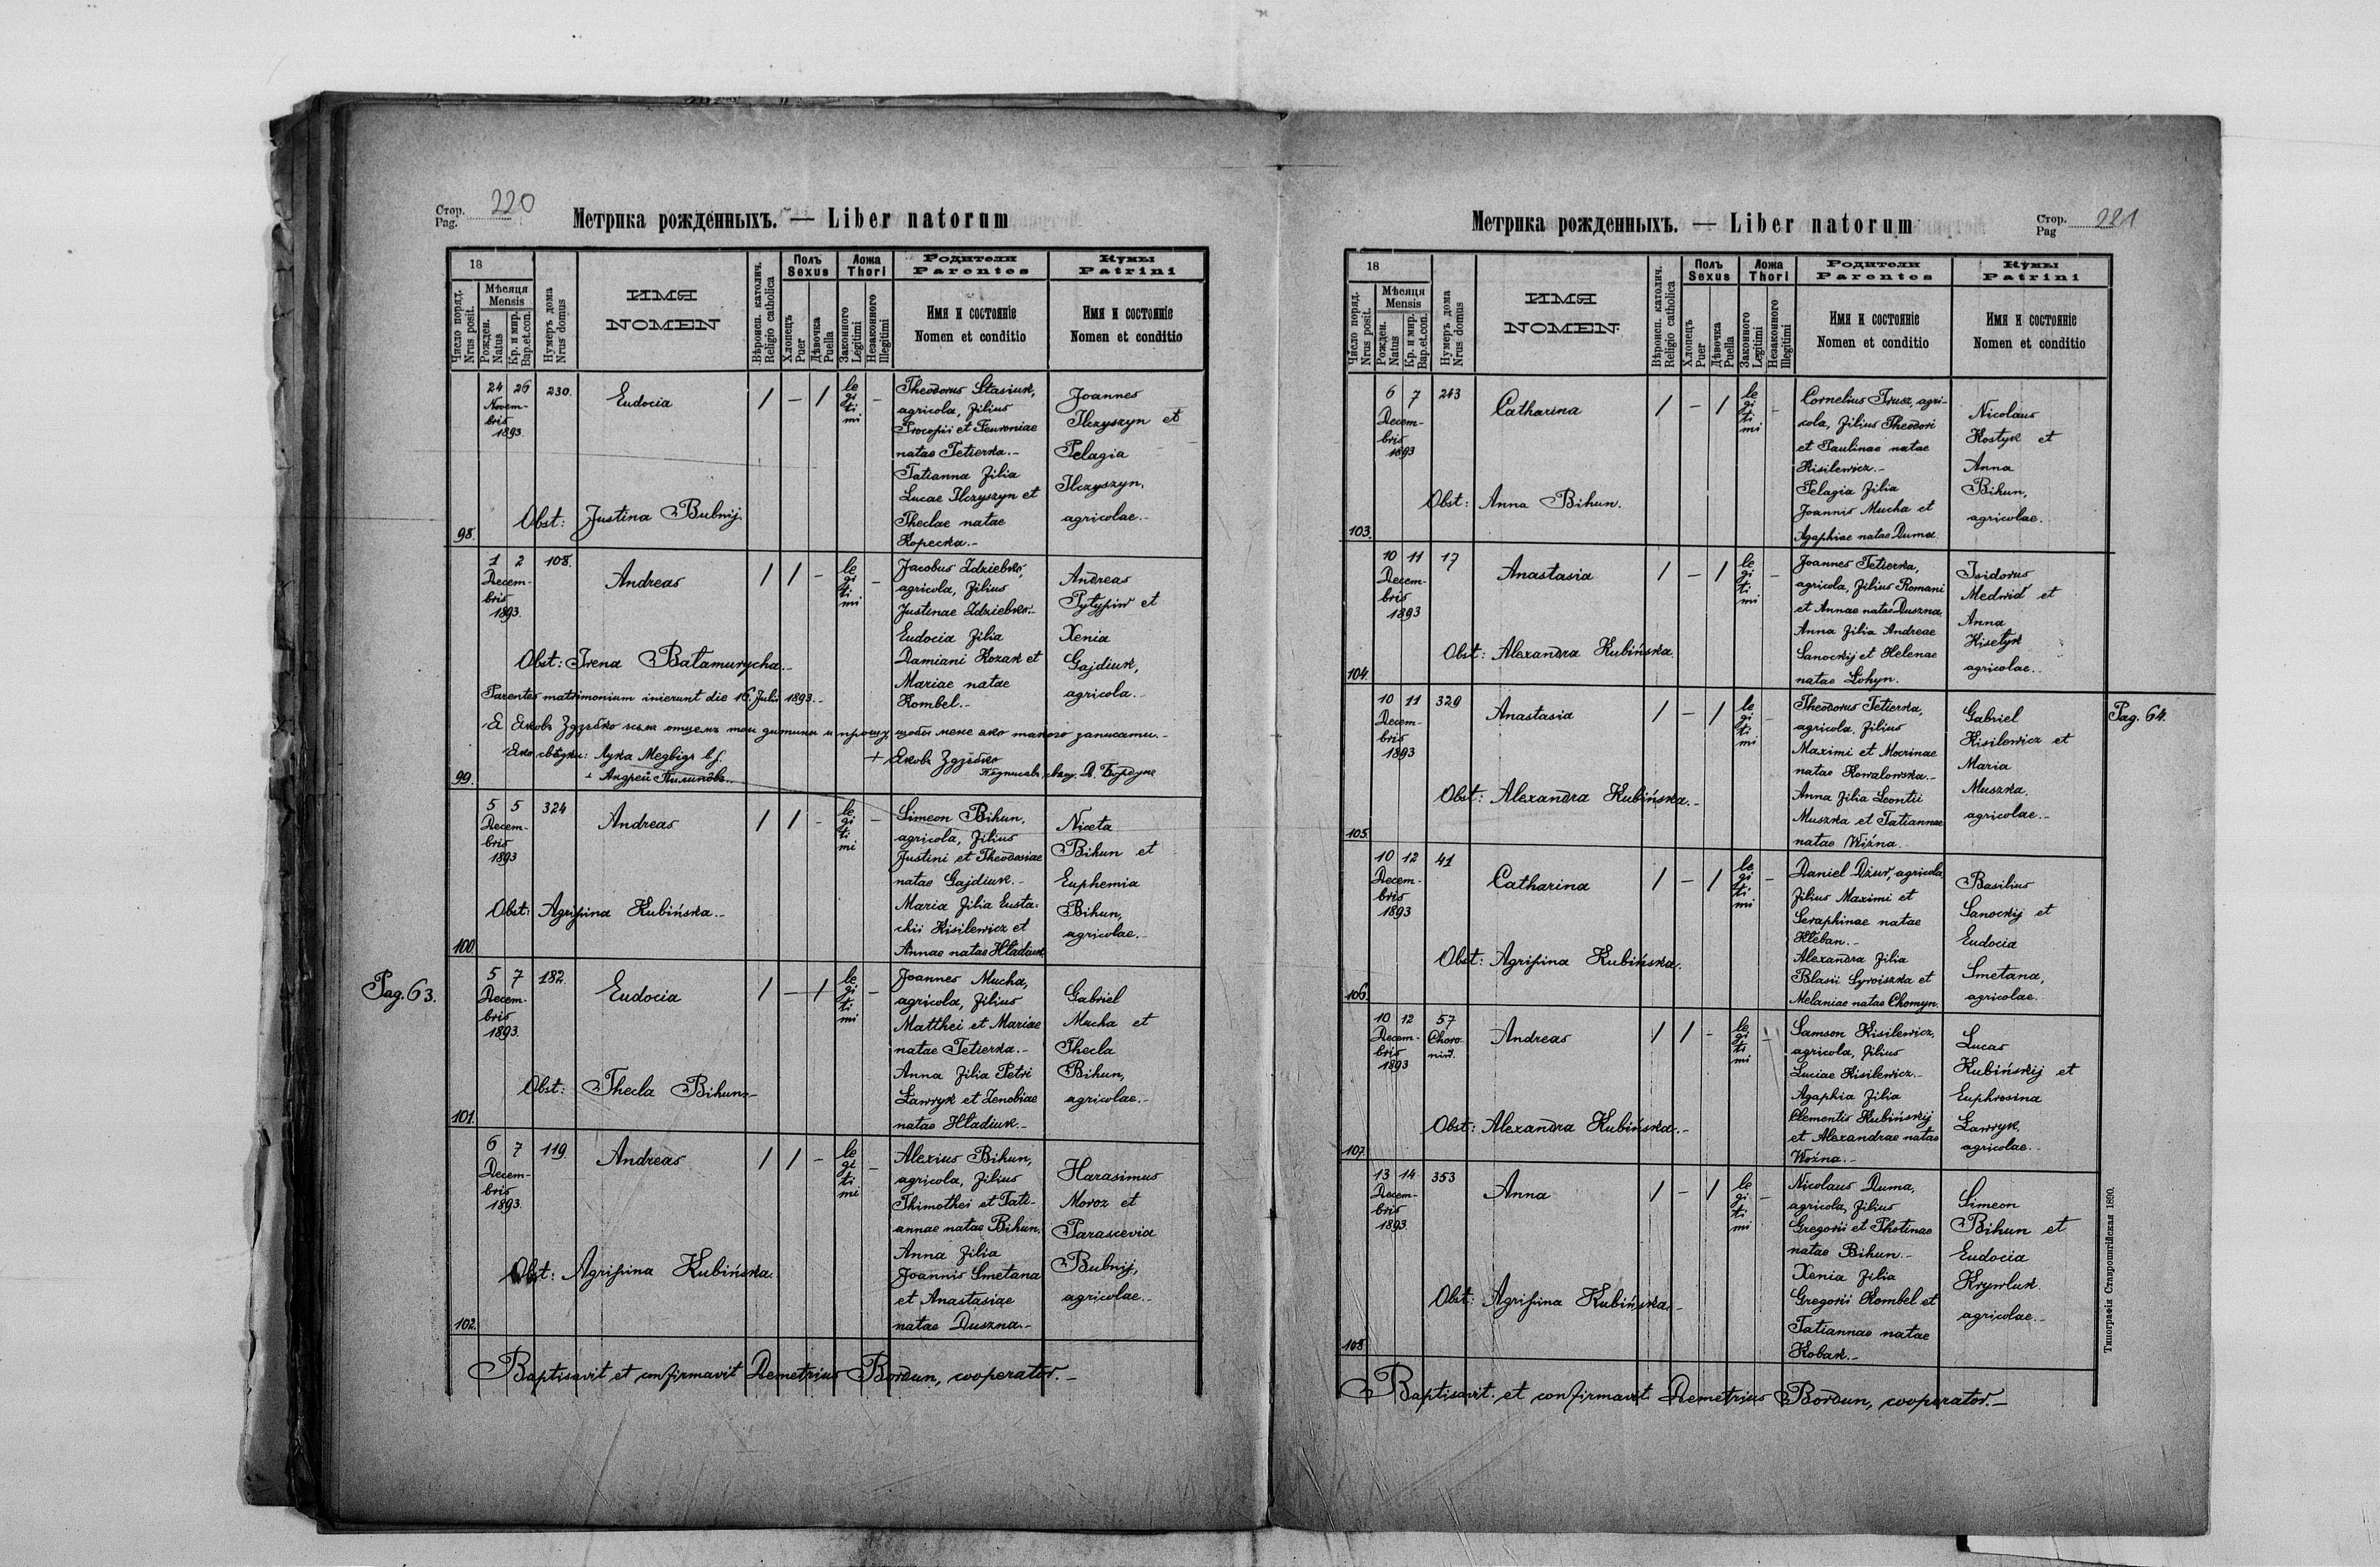 Стор.
Pag. 220
Метрика рожденныхъ. — Liber natorum
18
Число поряд.
Nrus posit.
Мѣсяця
Mensis
Рожден.
Natus
Кр. и мир.
Bap.et.con.
Нумеръ дома
Nrus domus
ИМЯ
NOMEN
Вѣроисп. католич.
Religio catholica
Полъ
Sexus
Хлопецъ
Puer
Дѣвочка
Puella
Ложа
Thori
Законного
Legitimi
Незаконного
Illegitimi
Родители
Parentes
Имя и состояніе
Nomen et conditio
Кумы
Patrini
Имя и состояніе
Nomen et conditio
98.
24 26
Novem-
bris
1893.
230.
Eudocia
/ - /
le
gi
ti
mi
-
Theodorus Stasiuk,
agricola, filius
Procopii et Feuroniae
natae Tetierka.-
Tatianna filia
Lucae Ilczyszyn et
Theclae natae
Kopecka.-
Joannes
Ilczyszyn et
Pelagia
Ilczyszyn,
agricolae.-
Obst: Justina Bubnij.
99.
1 2
Decem-
bris
1893.
108.
Andreas
/ / -
le
gi
ti
mi
-
Jacobus Zdziebko,
agricola, filius
Justinae Zdziebko.-
Eudocia filia
Damiani Kozak et
Mariae natae
Kombel.-
Andreas
Pytypiw et
Xenia
Gajdiuk,
agricola.-
Obst: Irena Batamurycha.-
Parentes matrimonium inierunt die 16. Julii 1893.-
Я Яковъ Здзѣбко есмь отцемъ той дитины и прошу, щобы мене яко такого записати.-
Яко свѣдки: Лука Медвідь
+ Яковъ Здзѣбко
+ Андрей
Подписавъ
100.
5 5
Decem-
bris
1893
324
Andreas
/ / -
le
gi
ti
mi
-
Simeon Bihun,
agricola, filius
Justini et Theodosiae
natae Gajdiuk.-
Maria filia Eusta-
chii Kisilewicz et
Annae natae Hładiuk
Niceta
Bihun et
Euphemia
Bihun,
agricolae.-
Obst: Agripina Kubińska.-
Pag. 63.
101.
5 7
Decem-
bris
1893.
182.
Eudocia
/ - /
le
gi
ti
mi
-
Joannes Mucha,
agricola, filius
Matthei et Mariae
natae Tetierka.-
Anna filia Petri
Ławryk et Zenobiae
natae Hładiuk.-
Gabriel
Mucha et
Thecla
Bihun,
agricolae.-
Obst: Thecla Bihun.-
102.
6 7
Decem-
bris
1893.
119.
Andreas
/ / -
le
gi
ti
mi
-
Alexius Bihun,
agricola, filius
Thimothei et Tati-
annae natae Bihun.
Anna filia
Joannis Smetana
et Anastasiae
natae Duszna.-
Harasimus
Moroz et
Parascevia
Bubnij,
agricolae.-
Obst: Agripina Kubińska.
Baptisavit et confirmavit Demetrius Bordun, cooperator.-
Метрика рожденныхъ. — Liber natorum
Стор.
Pag 221
18
Число поряд.
Nrus posit.
Мѣсяця
Mensis
Рожден.
Natus
Кр. и мир.
Bap.et.con.
Нумеръ дома
Nrus domus
ИМЯ
NOMEN.
Вѣроисп. католич.
Religio catholica
Полъ
Sexus
Хлопецъ
Puer
Дѣвочка
Puella
Ложа
Thori
Законного
Legitimi
Незаконного
Illegitimi
Родители
Parentes
Имя и состояніе
Nomen et conditio
Кумы
Patrini
Имя и состояніе
Nomen et conditio
103.
6 7
Decem-
bris
1893
243
Catharina
/ - /
le
gi
ti
mi
-
Cornelius Trusz, agri-
cola, filius Theodori
et Paulinae natae
Kisilewicz.-
Pelagia filia
Joannis Mucha et
Agaphiae natae Duma
Nicolaus
Kostyk et
Anna
Bihun,
agricolae.
Obst: Anna Bihun.
104.
10 11
Decem-
bris
1893
17
Anastasia
/ - /
le
gi
ti
mi
-
Joannes Tetierka,
agricola, filius Romani
et Annae natae Duszna.
Anna filia Andreae
Sanockij et Helenae
natae Łohyn.
Isidorus
Medwid et
Anna
Kisetyk
agricolae.-
Obst: Alexandra Kubińska.
105.
10 11
Decem-
bris
1893
329
Anastasia
/ - /
le
gi
ti
mi
-
Theodorus Tetierka,
agricola, filius
Maximi et Mocrinae
natae Kowalowska.-
Anna filia Leontii
Muszka et Tatiannae
natae Wiźna.
Gabriel
Kisilewicz et
Maria
Muszka,
agricolae.-
Pag. 64.
Obst: Alexandra Kubińska.-
106.
10 12
Decem-
bris
1893
41
Catharina
/ - /
le
gi
ti
mi
-
Daniel Dżur, agricola
filius Maximi et
Seraphinae natae
Kłeban.-
Alexandra filia
Blasii Syroiszka et
Melaniae natae Chomyn.
Basilius
Sanockij et
Eudocia
Smetana,
agricolae.
Obst: Agripina Kubińska.
107.
10 12
Decem-
bris
1893
57
Choro-
niw.
Andreas
/ / -
le
gi
ti
mi
-
Samson Kisilewicz,
agricola, filius
Luciae Kisilewicz.-
Agaphia filia
Clementis Kubińskij
et Alexandrae natae
Woźna.-
Lucas
Kubińskij et
Euphrosina
Ławryk,
agricolae.-
Obst: Alexandra Kubińska.-
108
13 14
Decem-
bris
1893.
353
Anna
/ - /
le
gi
ti
mi
-
Nicolaus Duma,
agricola, filius
Gregorii et Photinae
natae Bihun.-
Xenia filia
Gregorii Kombel et
Tatiannae natae
Kobak.-
Simeon
Bihun et
Eudocia
Krywluk
agricolae.-
Obst: Agripina Kubińska.-
Baptisavit et confirmavit Demetrius Bordun, cooperator.-
Типографія Ставропигійская 1890.